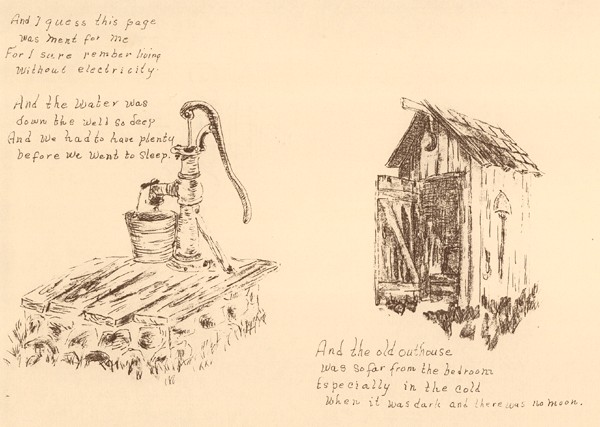 And I guess this page
was ment for me
For I sure rember living
Without electricity.
And the Water was
down the well so deep
And we had to have plenty
before we went to sleep.
And the old outhouse
was so far from the bedroom
Especially in the cold
When it was dark and there was no moon.